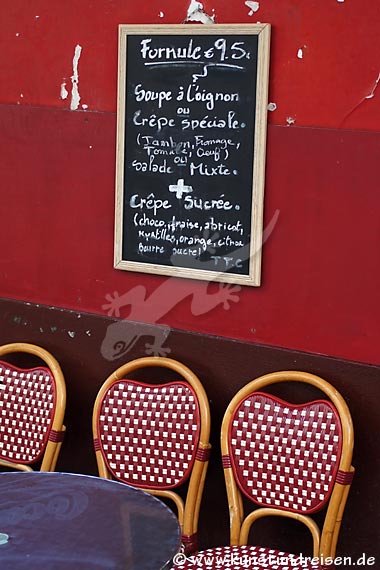 Formule € 9.5
Soupe à l'oignon
ou
Crêpe spéciale.
(Jambon, Fromage,
Tomate, Oeuf)
ou
Salade Mixte.
+
Crêpe Sucrée.
(choco, fraise, abricot,
Myrtilles, orange, citron
beurre sucre)
T.T.C
©www.kunstundreisen.de